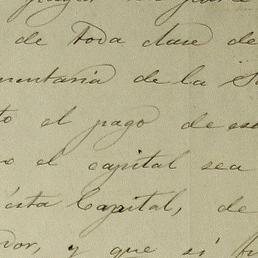 de toda clase de
mentaria de la
to el pago de
o el capital sea
ésta Capital, de
dor, y que si